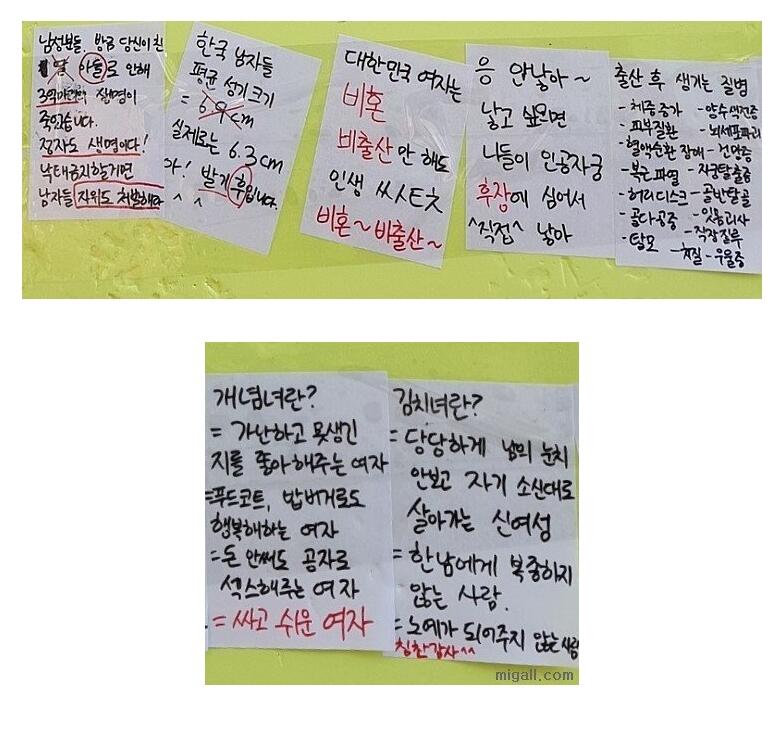 남성분들, 방금 당신이 친
딸 아들로 인해
3억마리의 생명이
죽었습니다.
정자도 생명이다!
낙태금지할거면
남자들 자위도 처벌해라
한국 남자들
평균 성기 크기
= 6.9cm
실제로는 6.3cm
아! 발기 후입니다.
^ ^
대한민국 여자는
비혼
비출산 안 해도
인생 씨스터츠
비혼~비출산~
응 안낳아~
낳고 싶으면
니들이 인공자궁
후장에 심어서
^직접^ 낳아
출산 후 생기는 질병
- 체중증가 - 양수색전증
- 피부질환 - 뇌세포파괴
- 혈액순환 장애 - 건망증
- 복근파열 - 자궁탈출증
- 허리디스크 - 골반탈골
- 골다공증 - 잇몸괴사
- 탈모 - 직장질루
- 치질 - 우울증
개념녀란?
= 가난하고 못생긴
지를 좋아해주는 여자
=푸드코트, 밥버거로도
행복해하는 여자
=돈 안써도 공짜로
섹스해주는 여자
= 싸고 쉬운 여자
김치녀란?
= 당당하게 남의 눈치
안보고 자기 소신대로
살아가는 신여성
= 한남에게 복종하지
않는 사람.
= 노예가 되어주지 않는 사람
칭찬감사^^
migall.com